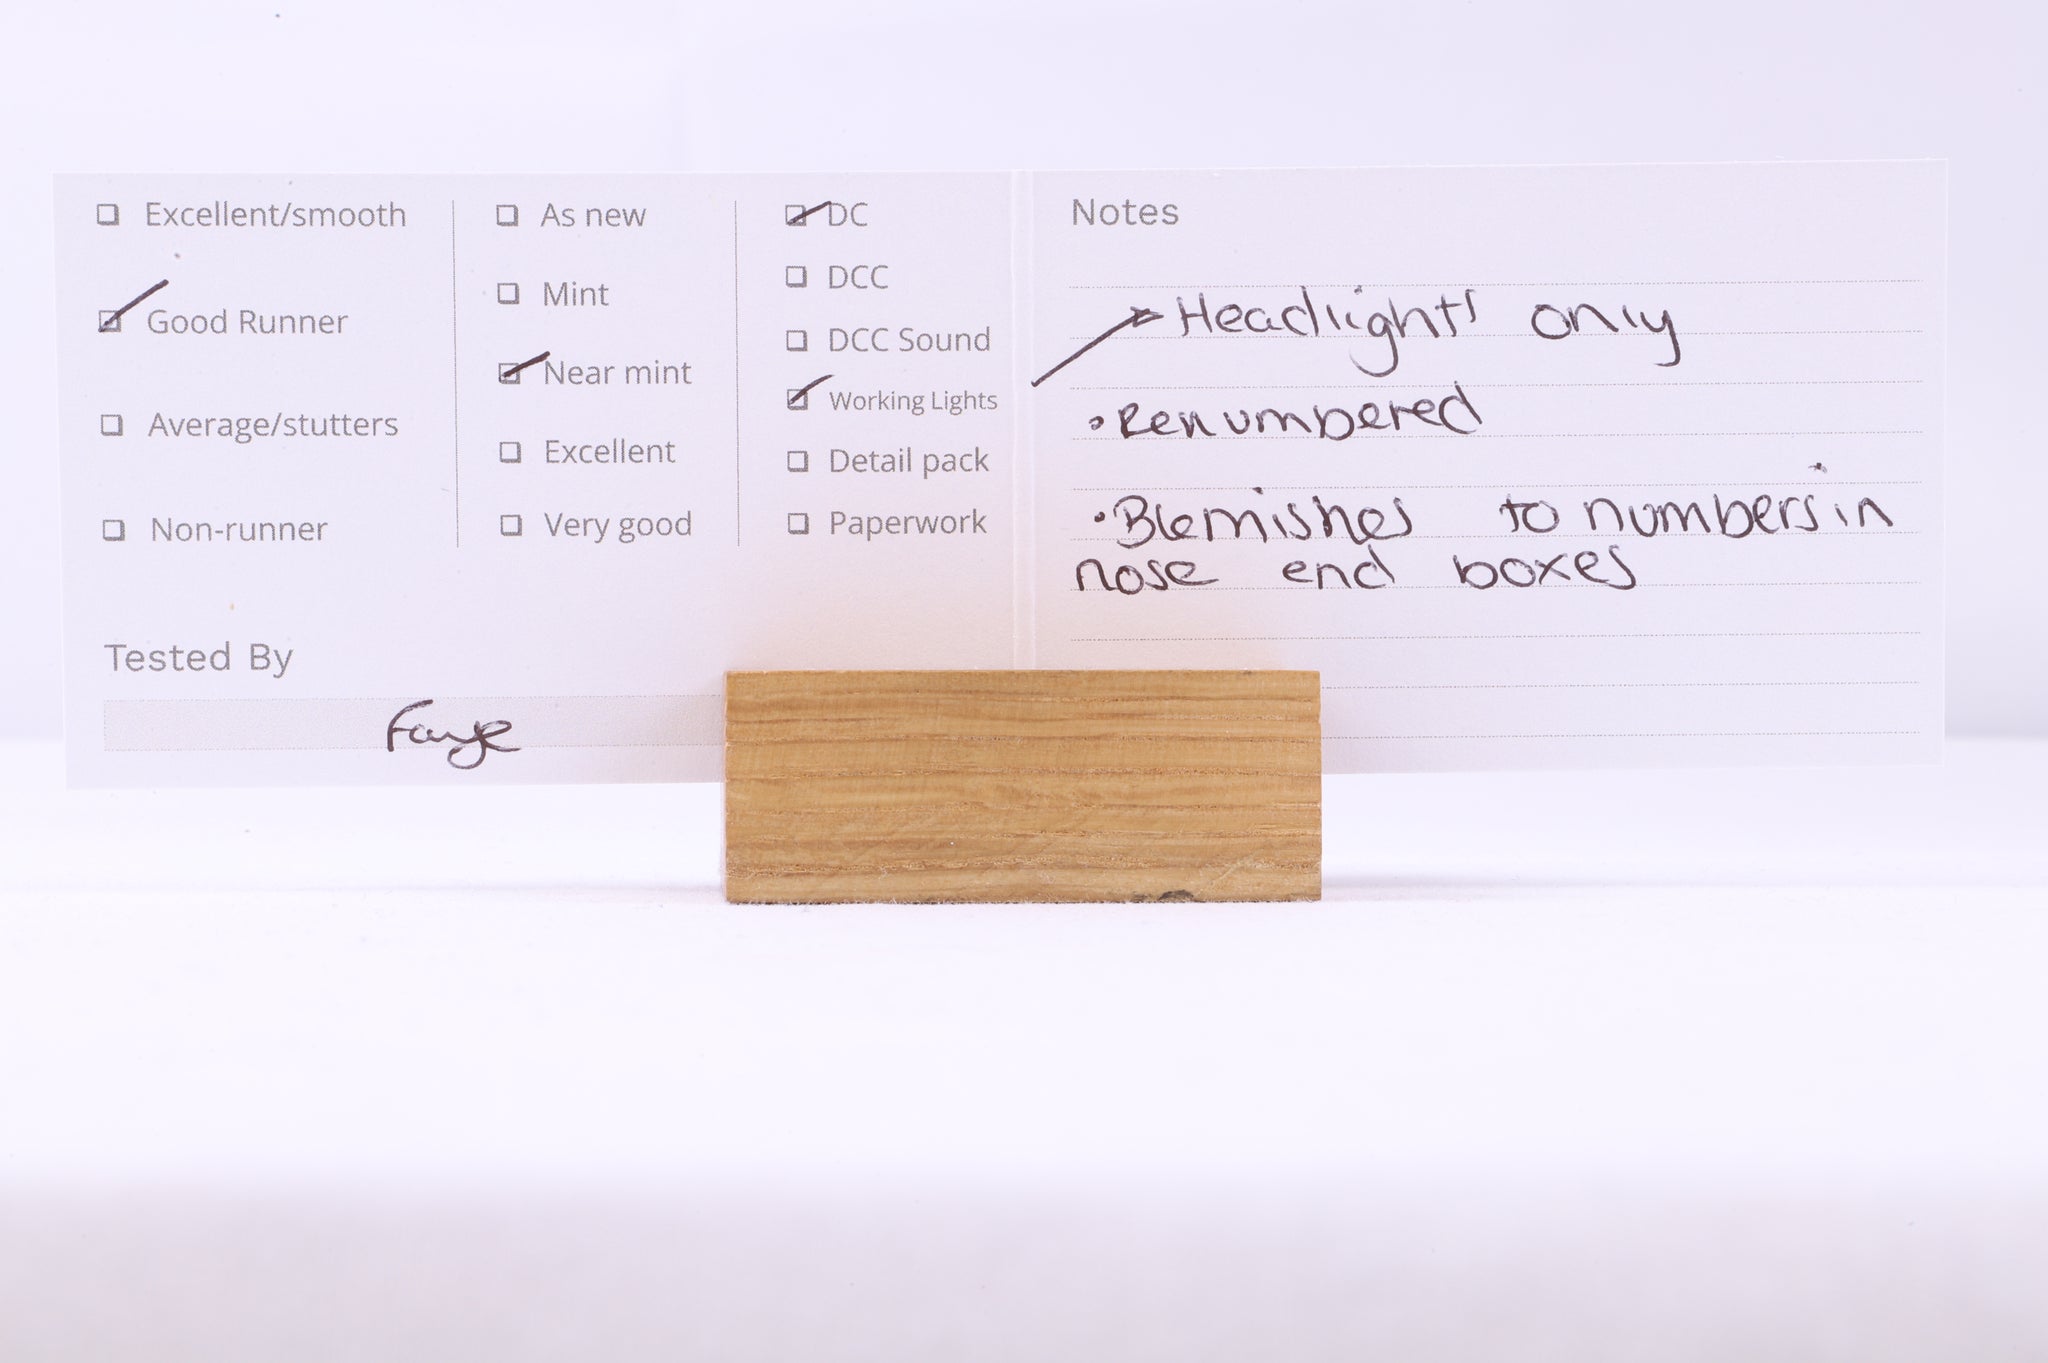 Excellent/smooth
Good Runner
Average/stutters
Non-runner
As new
Mint
Near mint
Excellent
Very good
DC
DCC
DCC Sound
Working Lights
Detail pack
Paperwork
Tested By
Faye
Notes
Headlights only
• Renumbered
• Blemishes to numbers in
nose end boxes